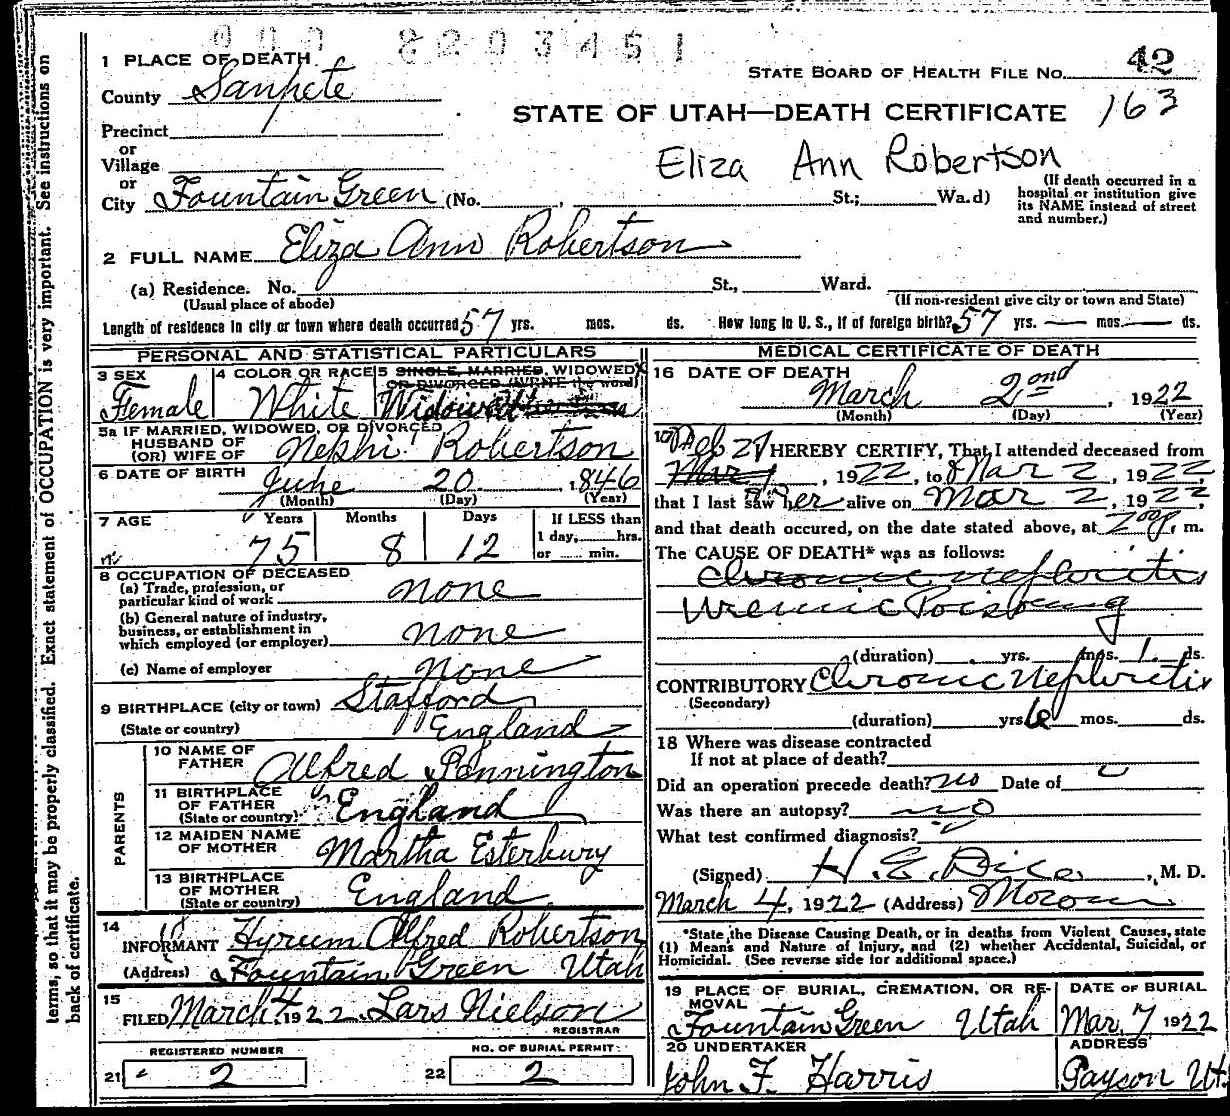 000 8203451
1 PLACE OF DEATH
STATE BOARD OF HEALTH FILE NO. 42
County Sanpete
STATE OF UTAH—DEATH CERTIFICATE 163
Precinct
or
Village
Eliza Ann Robertson
or
City Fountain Green (No. , St.; Ward)
(If death occurred in a
hospital or institution give
its NAME instead of street
and number.)
2 FULL NAME Eliza Ann Robertson
(a) Residence. No. St., Ward.
(Usual place of abode)
(If non-resident give city or town and State)
Length of residence in city or town where death occurred 57 yrs. mos. ds. How long in U. S., if of foreign birth? 57 yrs. — mos. — ds.
PERSONAL AND STATISTICAL PARTICULARS
3 SEX
Female
4 COLOR OR RACE
White
5 SINGLE, MARRIED, WIDOWED
OR DIVORCED (WRITE the word)
Widowed
5a IF MARRIED, WIDOWED, OR DIVORCED
HUSBAND OF
(OR) WIFE OF Nephi Robertson
6 DATE OF BIRTH
June 20, 1846
(Month) (Day) (Year)
7 AGE
Years Months Days
75 8 12
If LESS than
1 day, hrs.
or min.
8 OCCUPATION OF DECEASED
(a) Trade, profession, or
particular kind of work none
(b) General nature of industry,
business, or establishment in
which employed (or employer) none
(c) Name of employer none
9 BIRTHPLACE (city or town) Stafford
(State or country) England
PARENTS
10 NAME OF
FATHER Alfred Pennington
11 BIRTHPLACE
OF FATHER
(State or country) England
12 MAIDEN NAME
OF MOTHER Martha Esterbury
13 BIRTHPLACE
OF MOTHER
(State or country) England
14
INFORMANT Hyrum Alfred Robertson
(Address) Fountain Green Utah
15
FILED March 4, 1922 Lars Nielson
REGISTRAR
REGISTERED NUMBER
21 2
NO. OF BURIAL PERMIT
22 2
MEDICAL CERTIFICATE OF DEATH
16 DATE OF DEATH
March 2nd, 1922
(Month) (Day) (Year)
17 I HEREBY CERTIFY, That I attended deceased from
Feb 27
Mar 1, 1922, to Mar 2, 1922,
that I last saw her alive on Mar 2, 1922,
and that death occured, on the date stated above, at m.
The CAUSE OF DEATH* was as follows:
Chronic Nephritis
Uremic Poisoning
(duration) yrs. mos. 1 ds.
CONTRIBUTORY Chronic Nephritis
(Secondary)
(duration) yrs 6 mos. ds.
18 Where was disease contracted
If not at place of death?
Did an operation precede death? no Date of
Was there an autopsy? no
What test confirmed diagnosis?
(Signed) H. E. Dice, M. D.
March 4, 1922 (Address) Moroni
*State the Disease Causing Death, or in deaths from Violent Causes, state
(1) Means and Nature of Injury, and (2) whether Accidental, Suicidal, or
Homicidal. (See reverse side for additional space.)
19 PLACE OF BURIAL, CREMATION, OR RE-
MOVAL
Fountain Green Utah
DATE OF BURIAL
Mar. 7 1922
20 UNDERTAKER
John F. Harris
ADDRESS
Payson Ut.
terms, so that it may be properly classified. Exact statement of OCCUPATION is very important. See instructions on
back of certificate.